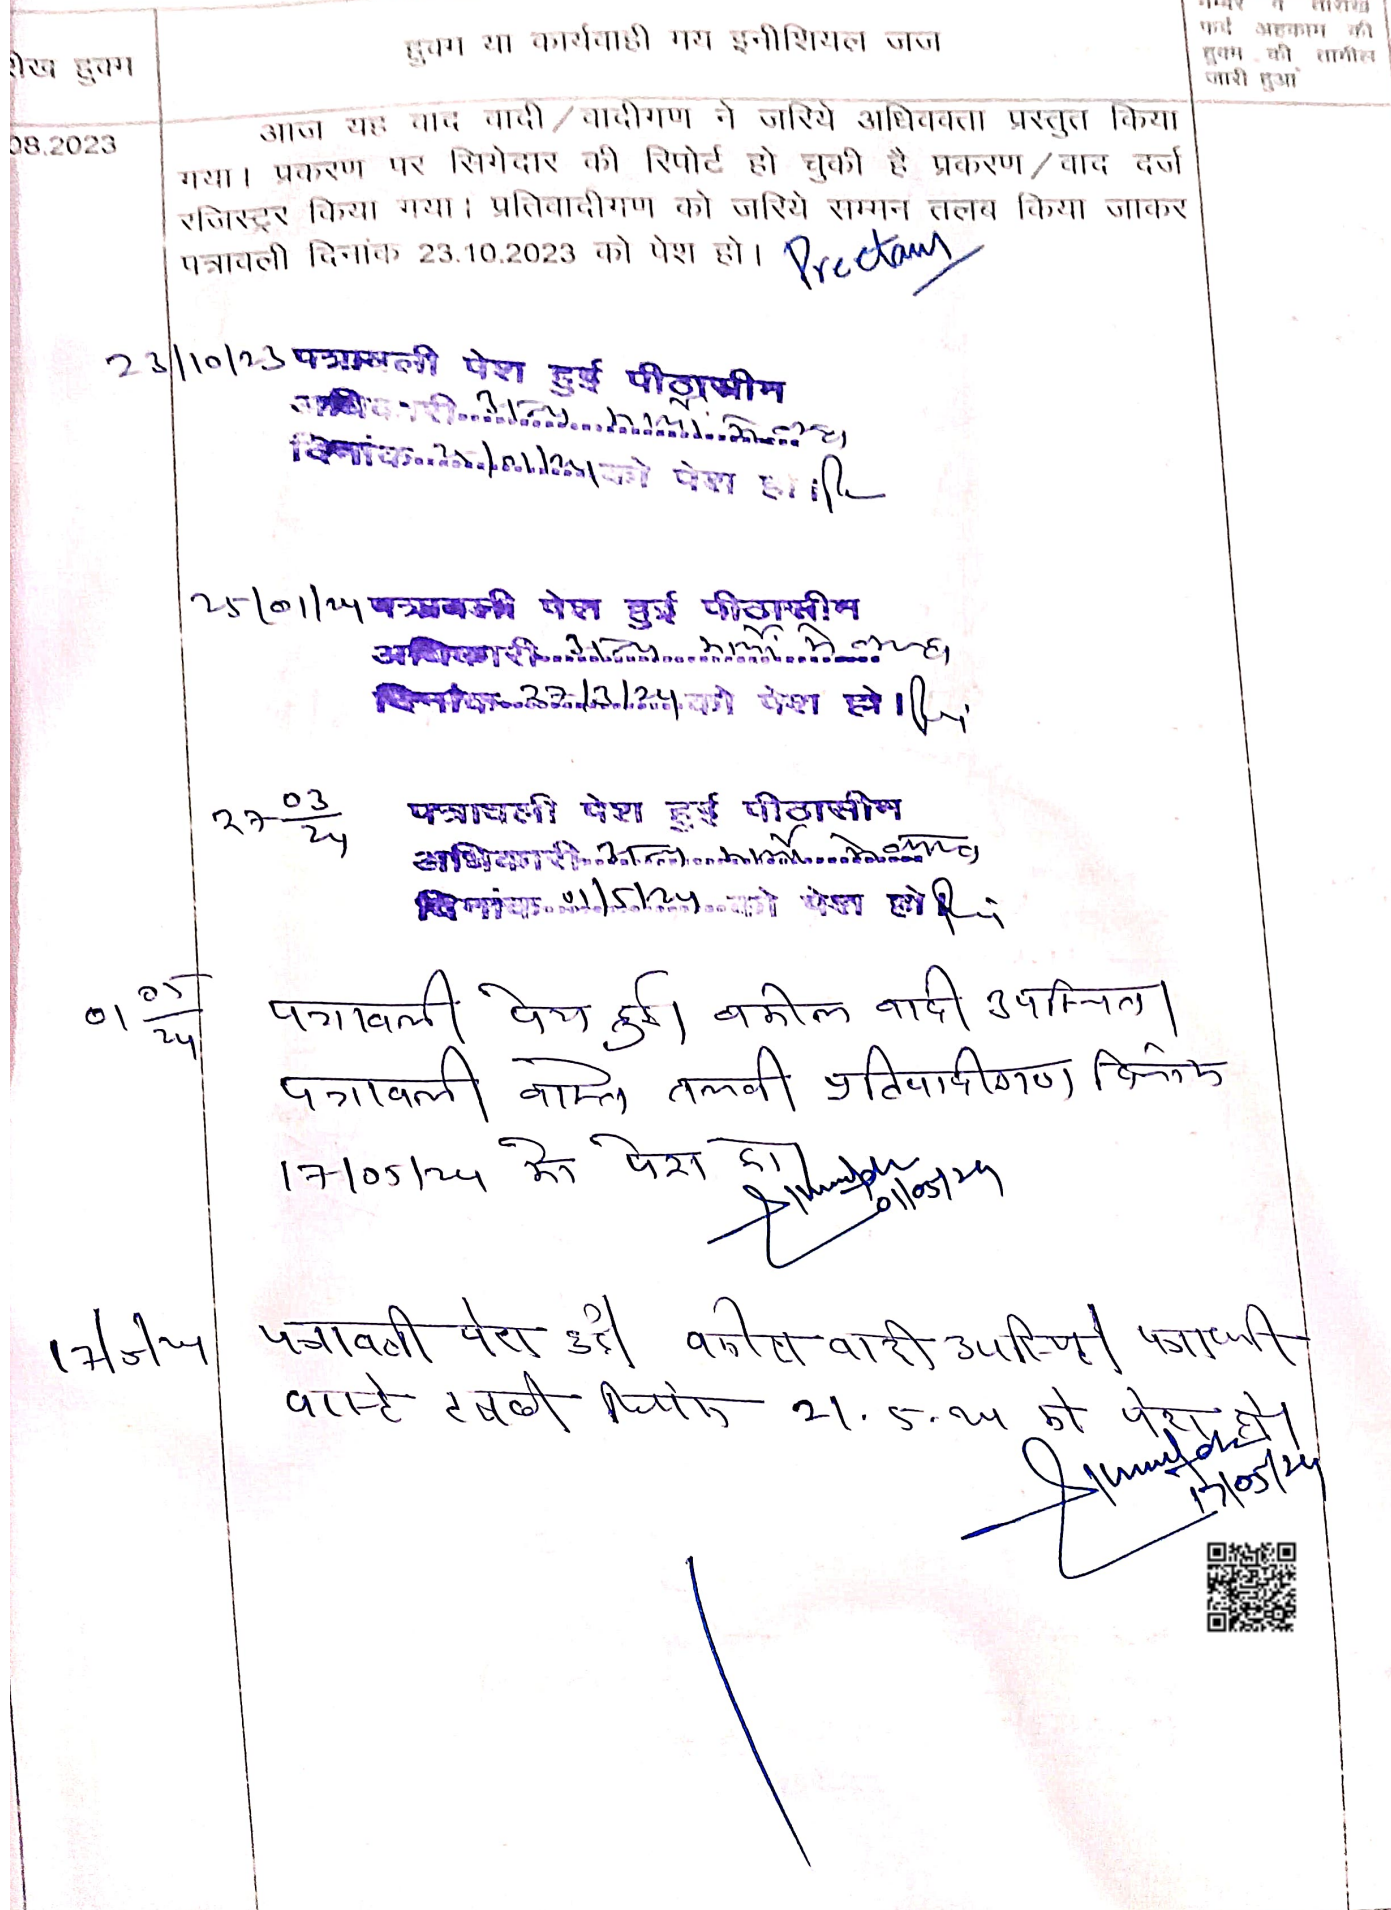 नम्बर व तारीख
फर्द अहकाम की
हुक्म की तामील
जारी हुआ
रीख हुक्म
हुक्म या कार्यवाही मय इनीशियल जज
08.2023
आज यह वाद वादी/वादीगण ने जरिये अधिवक्ता प्रस्तुत किया
गया। प्रकरण पर सिगेदार की रिपोर्ट हो चुकी है प्रकरण/वाद दर्ज
रजिस्ट्रर किया गया। प्रतिवादीगण को जरिये सम्मन तलब किया जाकर
पत्रावली दिनांक 23.10.2023 को पेश हो।
23/10/23 पत्रावली पेश हुई पीठासीन
अधिकारी अन्य कार्यो मे व्यस्त
दिनांक 25/01/24 को पेश हो।
25/01/24 पत्रावली पेश हुई पीठासीन
अधिकारी अन्य कार्यो मे व्यस्त
दिनांक 27/3/24 को पेश हो।
27 03/24 पत्रावली पेश हुई पीठासीन
अधिकारी अन्य कार्यो मे व्यस्त
दिनांक 01/5/24 को पेश हो
01 05/24 पत्रावली पेश हुई। वकील वादी उपस्थित।
पत्रावली वास्ते तलबी प्रतिवादीगण दिनांक
17/05/24 को पेश हो।
01/05/24
17/5/24 पत्रावली पेश हुई। वकील वादी उपस्थित। पत्रावली
वास्ते तलबी दिनांक 21.5.24 को पेश हो।
17/05/24